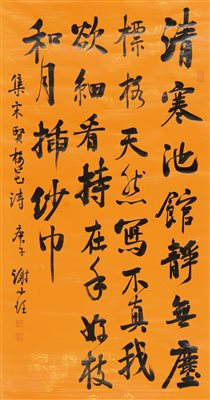 清寒池館靜無塵
標格天然寫不真我
欲細看持在手好枝
和月插紗巾
集宋賢梅邑詩 庚子 謝小